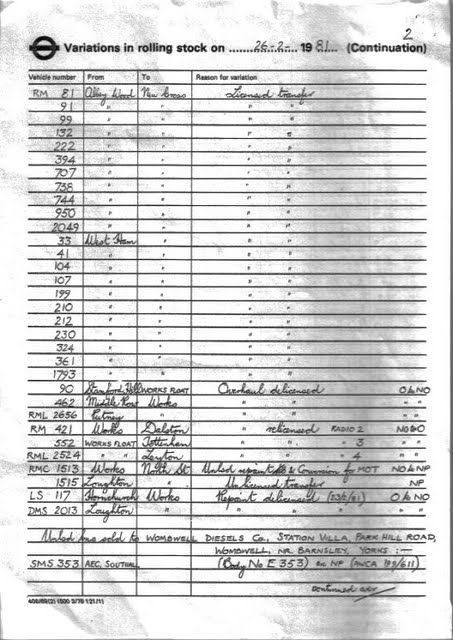 2
Variations in rolling stock on 26-2- 1981 (Continuation)
Vehicle number From To Reason for variation
RM 81 Abbey Wood New Cross Licensed transfer
91 " " " "
99 " " " "
132 " " " "
222 " " " "
394 " " " "
707 " " " "
738 " " " "
744 " " " "
950 " " " "
2049 " " " "
33 West Ham " " "
41 " " " "
104 " " " "
107 " " " "
199 " " " "
210 " " " "
212 " " " "
230 " " " "
324 " " " "
361 " " " "
1793 " " " "
90 Stamford Hill WORKS FLOAT Overhaul delicensed O to NO
462 Middle Row Works " " "
RML 2656 Putney " " " "
RM 421 Works Dalston " relicensed RADIO 2 NO to O
552 WORKS FLOAT Tottenham " " " 3 "
RML 2524 " " Leyton " " " 4 "
RMC 1513 Works North St Unlic'd repaintable & Conversion for MOT NO to NP
1515 Loughton " Unlicensed transfer NP
LS 117 Hornchurch Works Repaint delicensed (23/2/81) O to NO
DMS 2013 Loughton " " " "
Unlic'd bus sold to WOMBWELL DIESELS Co., STATION VILLA, PARK HILL ROAD,
WOMBWELL, NR. BARNSLEY, YORKS :—
SMS 353 AEC, SOUTHALL (Body No E 353) ex NP (AWCA 99/611)
continued over